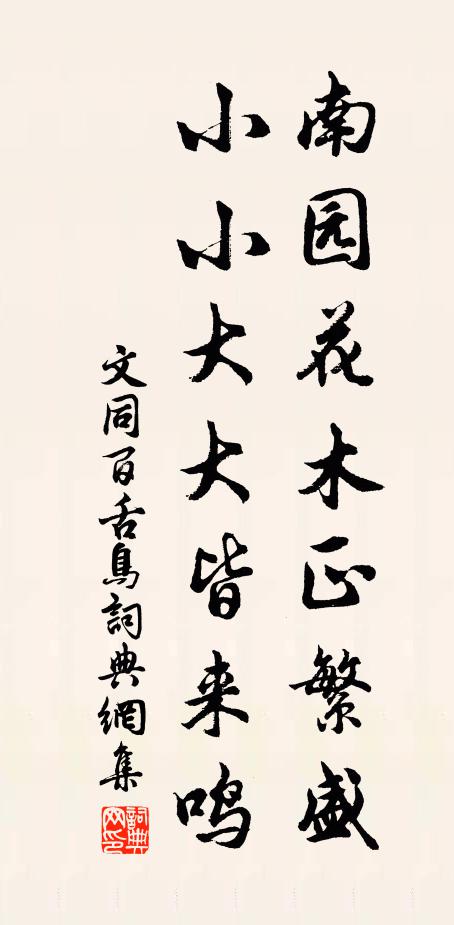 南园花木正繁盛
小小大大皆来鸣
文同百舌鳥詞典網集
詞典网印